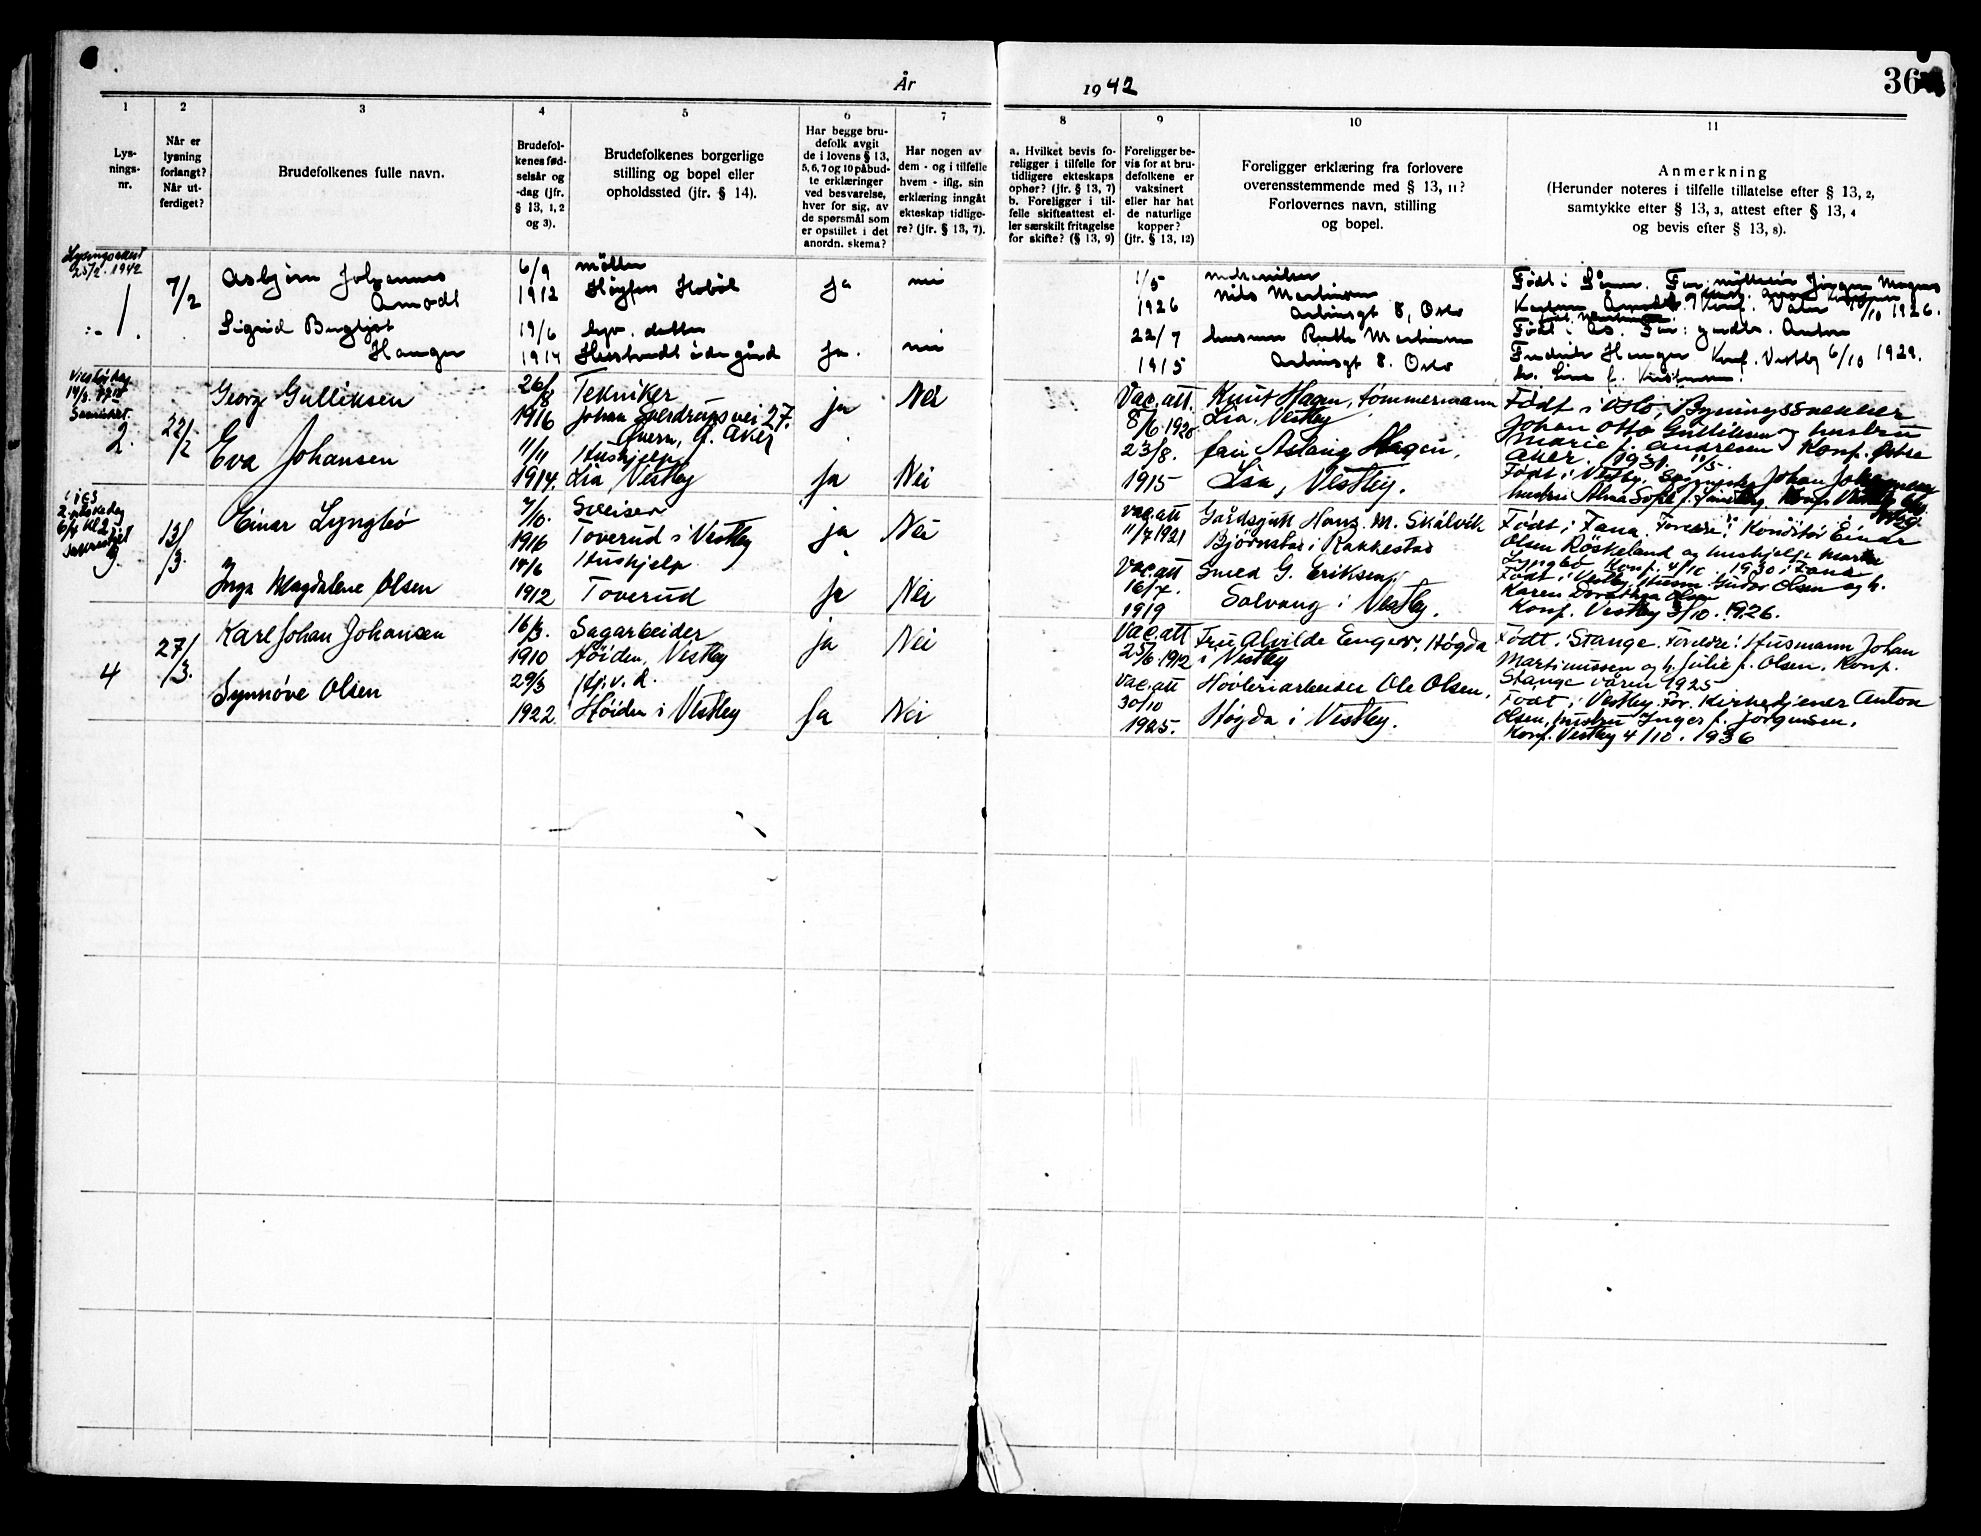 År 1942
36
1
2
3
4
5
6
7
8
9
10
11
Lys-
nings-
nr.
Når er
lysning
forlangt?
Når ut-
ferdiget?
Brudefolkenes fulle navn.
Brudefol-
kenes fød-
selsår og
-dag (jfr.
§ 13, 1, 2
og 3).
Brudefolkenes borgerlige
stilling og bopel eller
opholdssted (jfr. § 14).
Har begge bru-
defolk avgit
de i lovens § 13,
5, 6, 7 og 10 påbud-
te erklæringer
ved besvarelse,
hver for sig, av
de spørsmål som
er opstillet i det
anordn. skema?
Har nogen av
dem - og i tilfelle
hvem - iflg. sin
erklæring inngåt
ekteskap tidlige-
re? (jfr. § 13, 7).
a. Hvilket bevis fo-
religger i tilfelle for
tidligere ekteskaps
ophør? (jfr. § 13, 7)
b. Foreligger i til-
felle skifteattest el-
ler særskilt fritagelse
for skifte? (§ 13, 9)
Foreligger be-
vis for at bru-
defolkene er
vaksinert
eller har hat
de naturlige
kopper?
(jfr. § 13, 12)
Foreligger erklæring fra forlovere
overensstemmende med § 13, 11?
Forlovernes navn, stilling
og bopel.
Anmerkning
(Herunder noteres i tilfelle tillatelse efter § 13, 2,
samtykke efter § 13, 3, attest efter § 13, 4
og bevis efter § 13, 8).
Lysingsattest
25/2. 1942
1.
7/2
Asbjørn Johannes
Amodt
6/9
1912
møller
Høyfoss Hobøl
ja
nei
1/5
1926
Nils Martinsen
8, Oslo
Født i
10/10 1926.
Sigrid Bergljot
Hauger
19/6
1914
datter
ja.
nei
22/7
1915
Ruth Martinsen
8. Oslo
Født i Ås. Far: gårdbr. Anton
Fredrik Hauger Konf. Vestby 6/10 1929.
2.
22/2
Georg Gulliksen
26/8
1916
Tekniker
Johan Sverdrupsvei 27.
Ø. Aker
ja
Nei
Vac. att.
8/6 1920
Knut Hagen, tømmermann
Lia, Vestby
Født i Oslo, Bygningssnekker
Johan Otto Gulliksen og hustru
Marie f. Andresen Konf. Østre
Aker 1931
Eva Johansen
11/11
1914.
Hushjelp
Lia, Vestby
ja
Nei
23/8.
1915
fru Aslaug Hagen,
Lia, Vestby.
Født i Vestby, Johan
hustru Alma Sofie f. Konf. Vestby
13/3.
Einar Lyngbø
7/10.
1916
Sveiser
Toverud i Vestby
ja
Nei
Vac. att
11/7 1921
Gårdsgutt Hans. M. Skålvik
Bjørnstad i Rakkestad
Født i Fana. Foreldre: Konditor Einar
Olsen Røskeland og hushjelp Marta
Lyngbø Konf. 4/10. 1930 i Fana
Inga Magdalene Olsen
14/6
1912
Hushjelp
Toverud
ja
Nei
Vac. att
16/7.
1919
Smed G. Eriksen,
Solvang i Vestby.
Født i Vestby, Gudor Olsen og h.
Karen Dorothea Olsen
Konf. Vestby 3/10. 1926.
4
27/3.
Karl Johan Johansen
16/3.
1910
Sagarbeider
Høiden, Vestby
ja
Nei
Vac. att
25/6. 1912
Fru Alvilde Enger, Høgda
i Vestby
Født i Stange. Foreldre: Husmann Johan
Martinussen og h. Julie f. Olsen. Konf.
Stange våren 1925
Synnøve Olsen
29/3
1922.
Hj. v. d.
Høiden i Vestby
Ja
Nei
Vac. att
30/10
1925.
Høvleriarbeider Ole Olsen,
Høgda i Vestby.
Født i Vestby. For. Kirketjener Anton
Olsen, hustru Inger f. Jørgensen.
Konf. Vestby 4/10. 1936